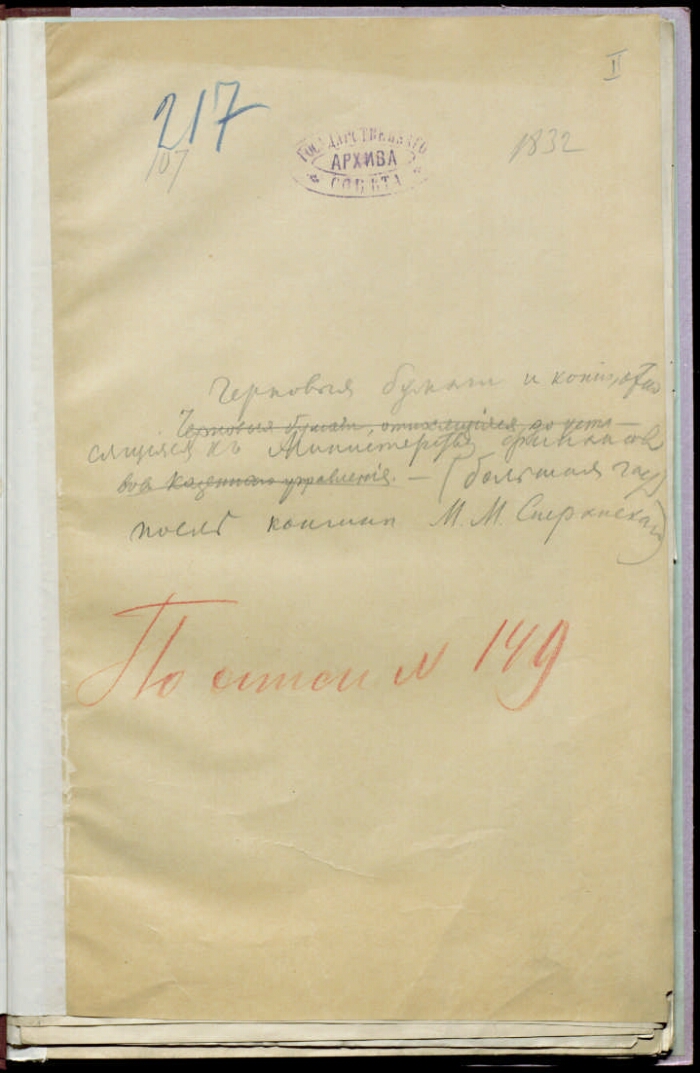 II
217
107
ГОСУДАРСТВЕННАГО
АРХИВА
СОВѢТА
1832
Черновыя бумаги и копіи, отно
Черновыя бумаги, относящіяся до уста–
сящіяся къ Министерству финансовъ
вовъ Казеннаго управленія. – (большая часть
послѣ кончины М. М. Сперанскаго)
По описи № 149